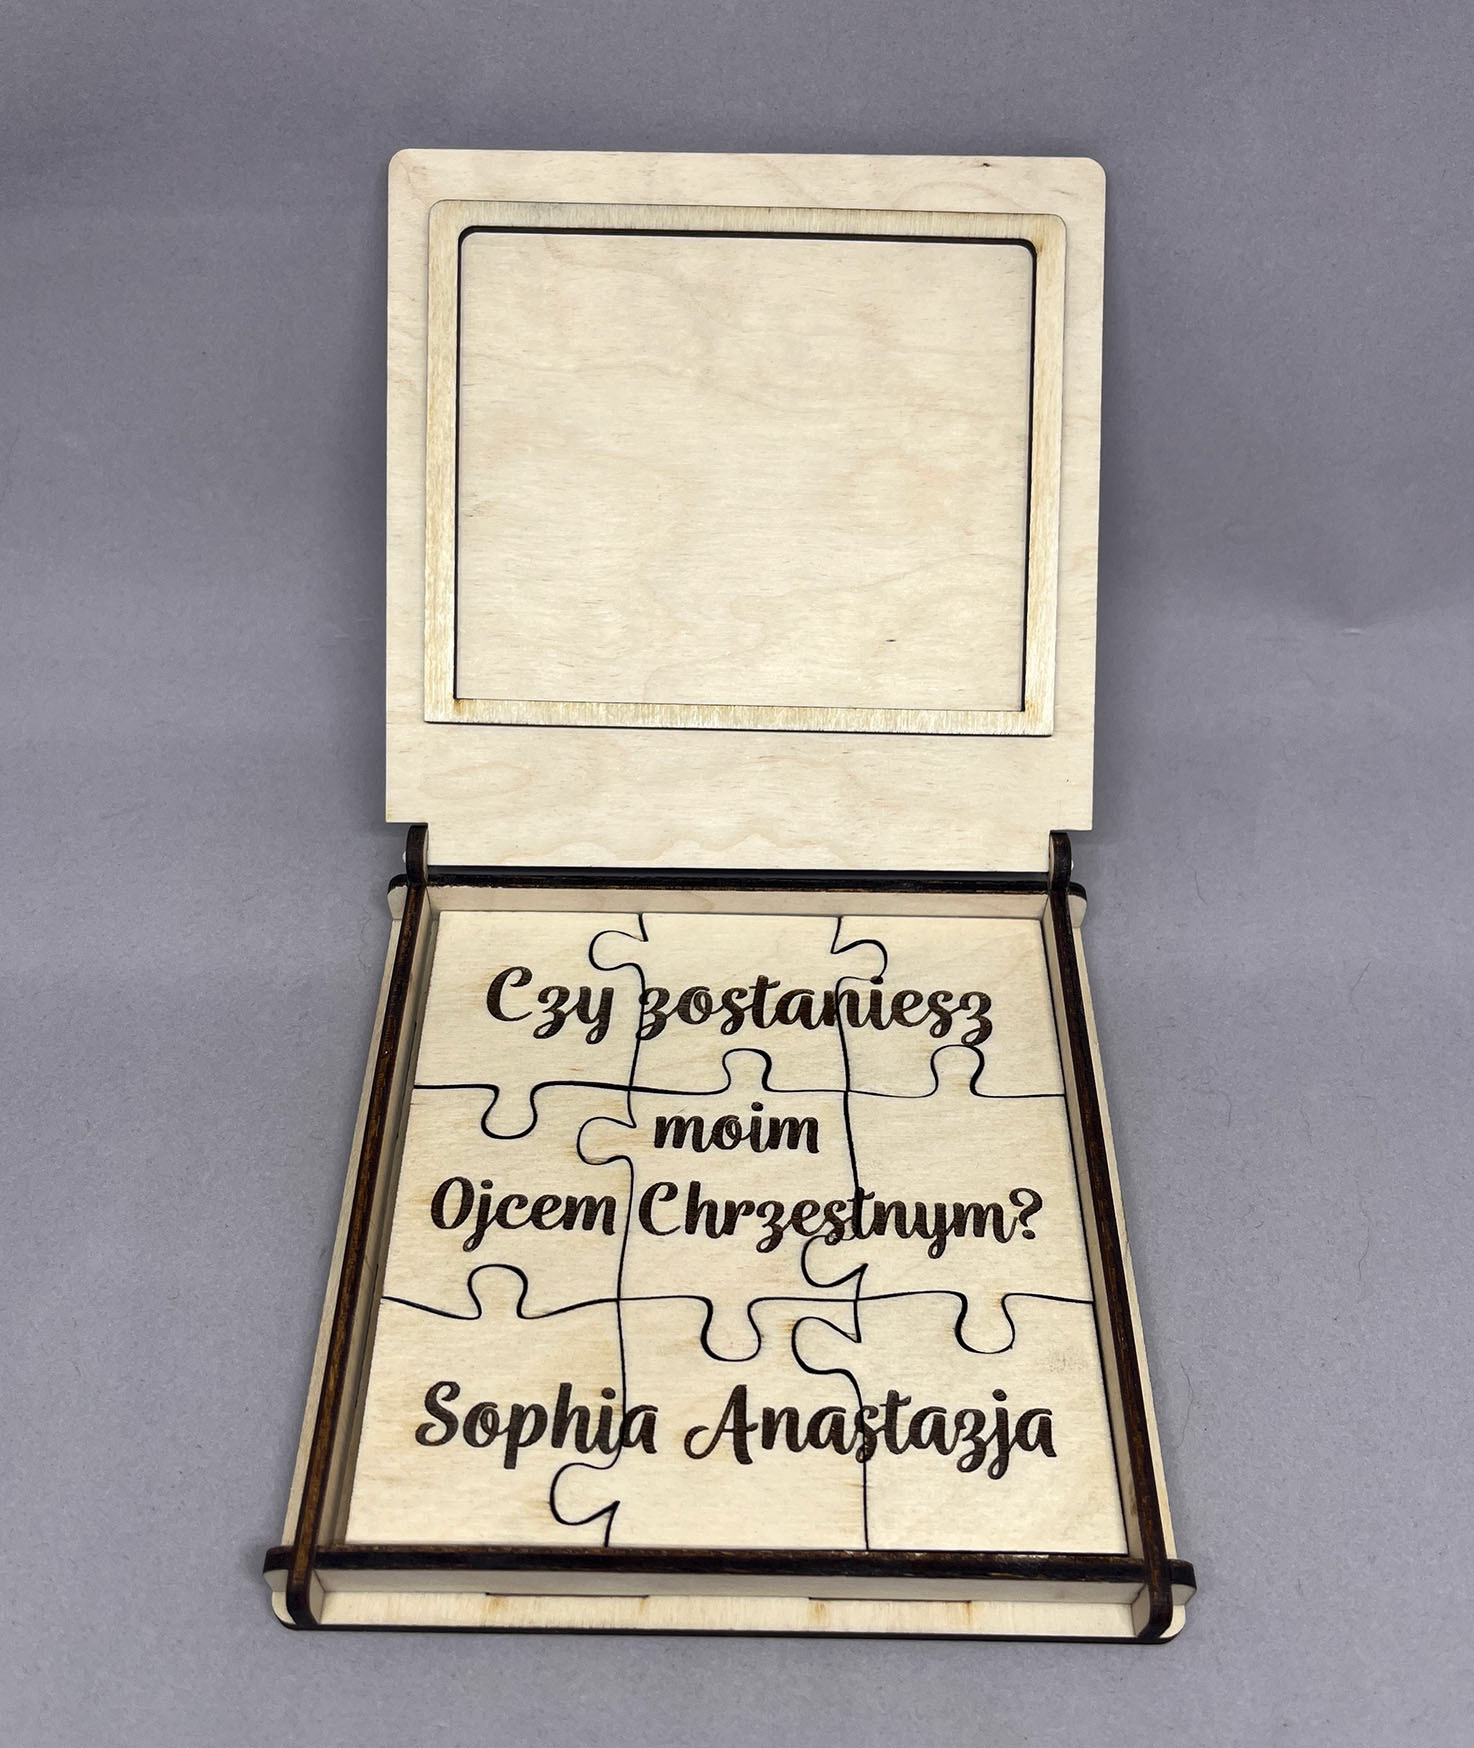 Czy zostaniesz
moim
Ojcem Chrzestnym?
Sophia Anastazja